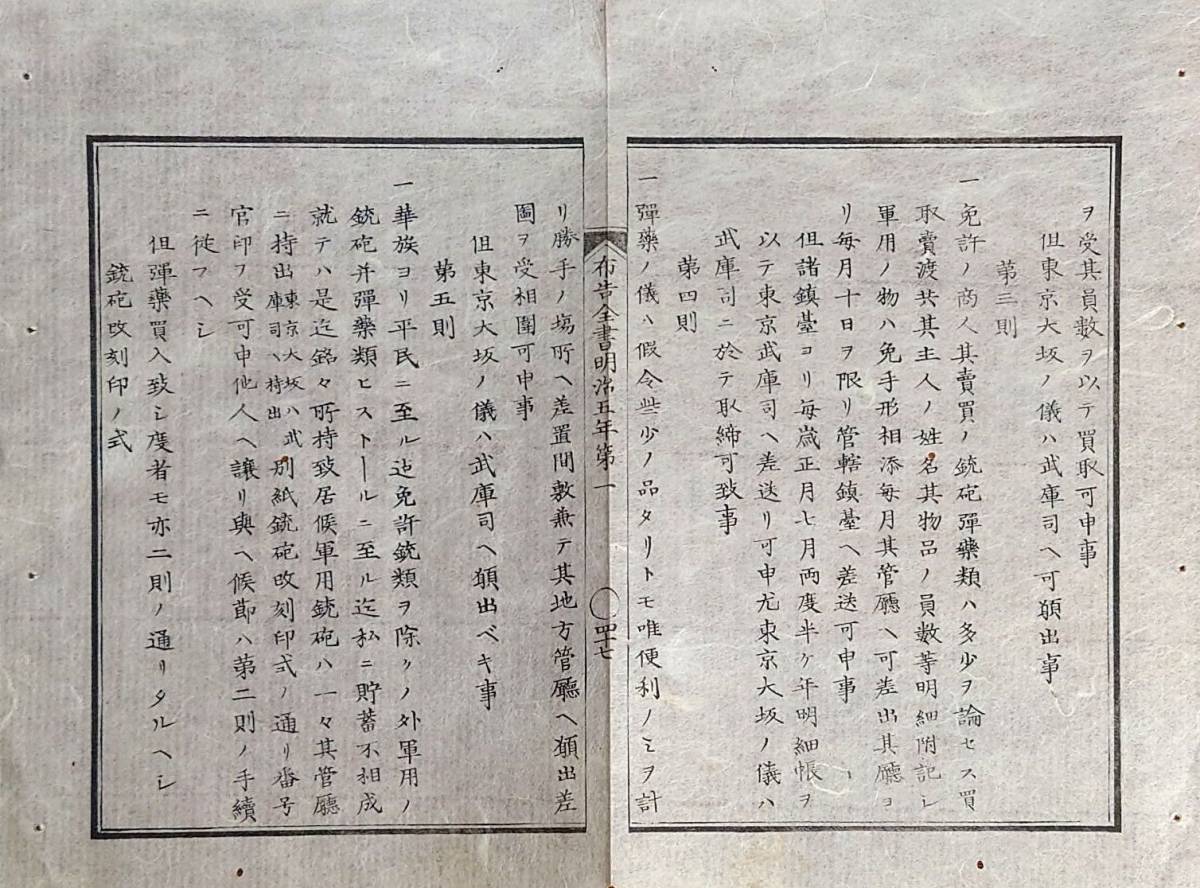 ヲ受其員數ヲ以テ買取可申事
但東京大坂ノ儀ハ武庫司ヘ可願出事
第三則
一免許ノ商人其賣買ノ銃砲彈藥類ハ多少ヲ論セス買
取賣渡共其主人ノ姓名其物品ノ員數等明細附記シ
軍用ノ物ハ免手形相添毎月其管廳ヘ可差出其廳ヨ
リ毎月十日ヲ限リ管轄鎮臺ヘ差送可申事
但諸鎮臺ヨリ毎歳正月七月両度半ケ年明細帳ヲ
以テ東京武庫司ヘ差送リ可申尤東京大坂ノ儀ハ
武庫司ニ於テ取締可致事
第四則
一彈藥ノ儀ハ假令些少ノ品タリトモ唯便利ノミヲ計
布告全書明治五年第一
〇四十七
リ勝手ノ塲所ヘ差置間敷兼テ其地方管廳ヘ願出差
圖ヲ受相圍可申事
但東京大坂ノ儀ハ武庫司ヘ願出ベキ事
第五則
一華族ヨリ平民ニ至ル迠免許銃類ヲ除クノ外軍用ノ
銃砲并彈藥類ヒストールニ至ル迠私ニ貯蓄不相成
就テハ是迠銘々所持致居候軍用銃砲ハ一々其管廳
ニ持出東京大坂ハ武庫司ヘ持出別紙銃砲改刻印式ノ通リ番号
官印ヲ受可申他人ヘ讓リ與ヘ候節ハ第二則ノ手續
ニ從フヘシ
但彈藥買入致シ度者モ亦二則ノ通リタルヘシ
銃砲改刻印ノ式